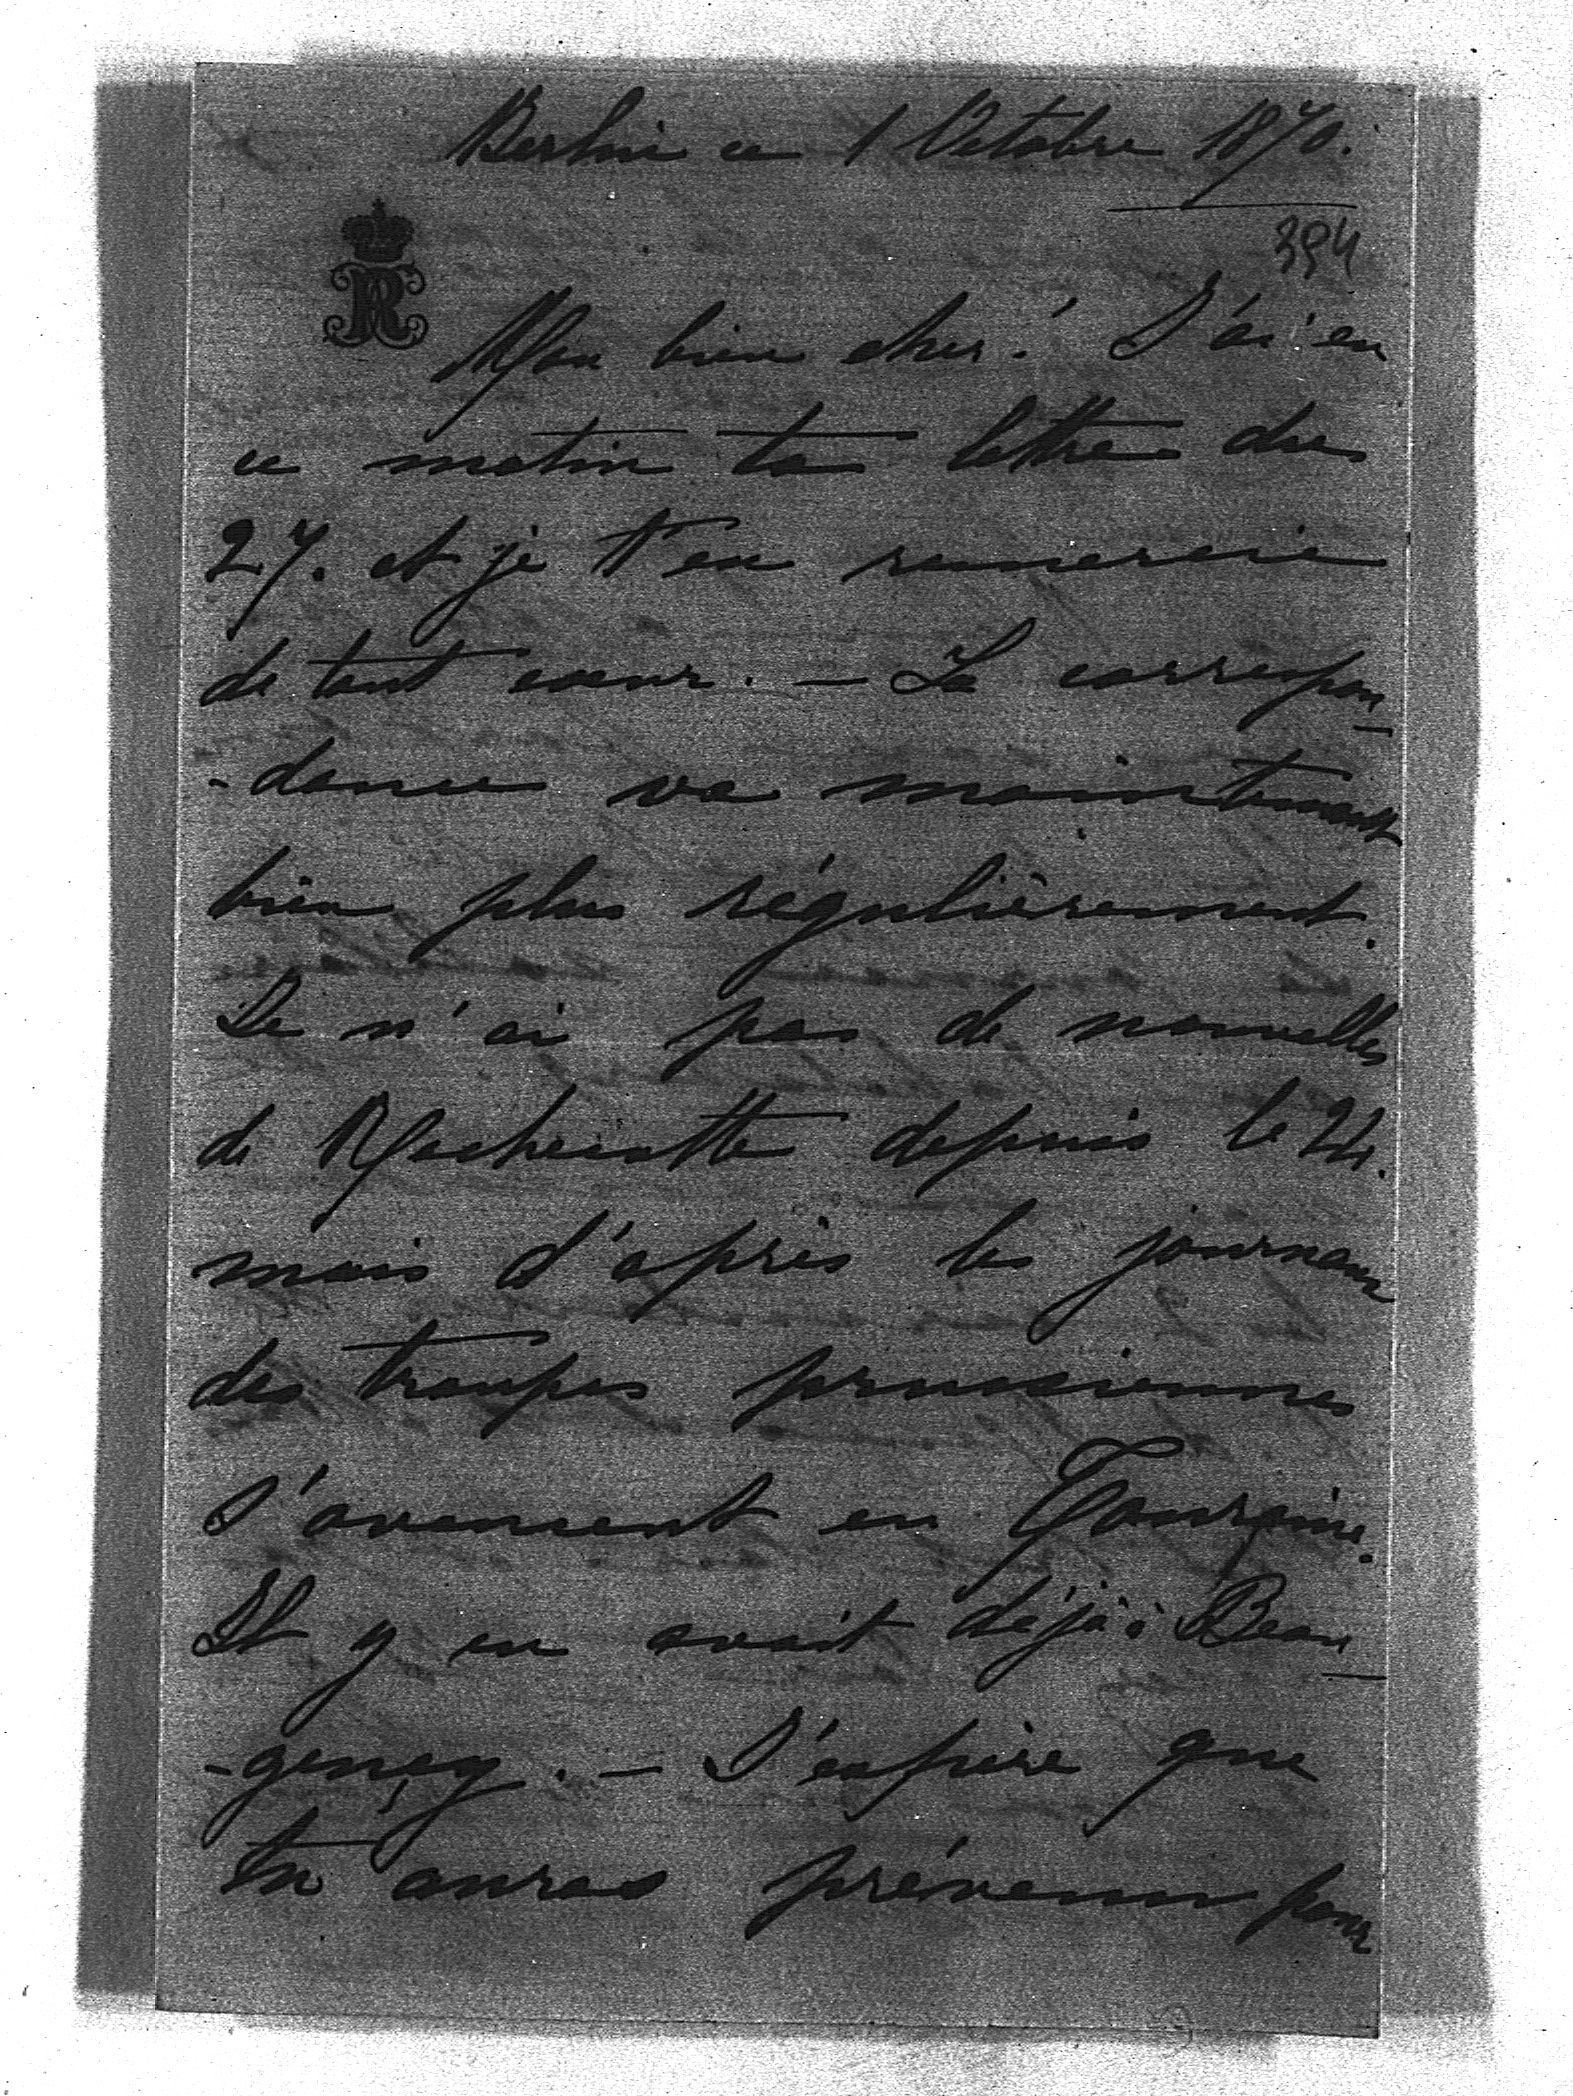 Berlin ce 1 Octobre 1870.
394
Mon bien cher! J'ai eu
ce matin ta lettre du
27. et je t'en remercie
de tout coeur. – La correspon-
-dance va maintenant
bien plus régulièrement.
Je n'ai pas de nouvelles
de Rochecotte depuis le 24.
mais d'après les journaux
des troupes prussiennes
s'avancent en Touraine.
Il y en avait déjà à Beau-
-gency. – J'espère que
tu auras prévenu pour